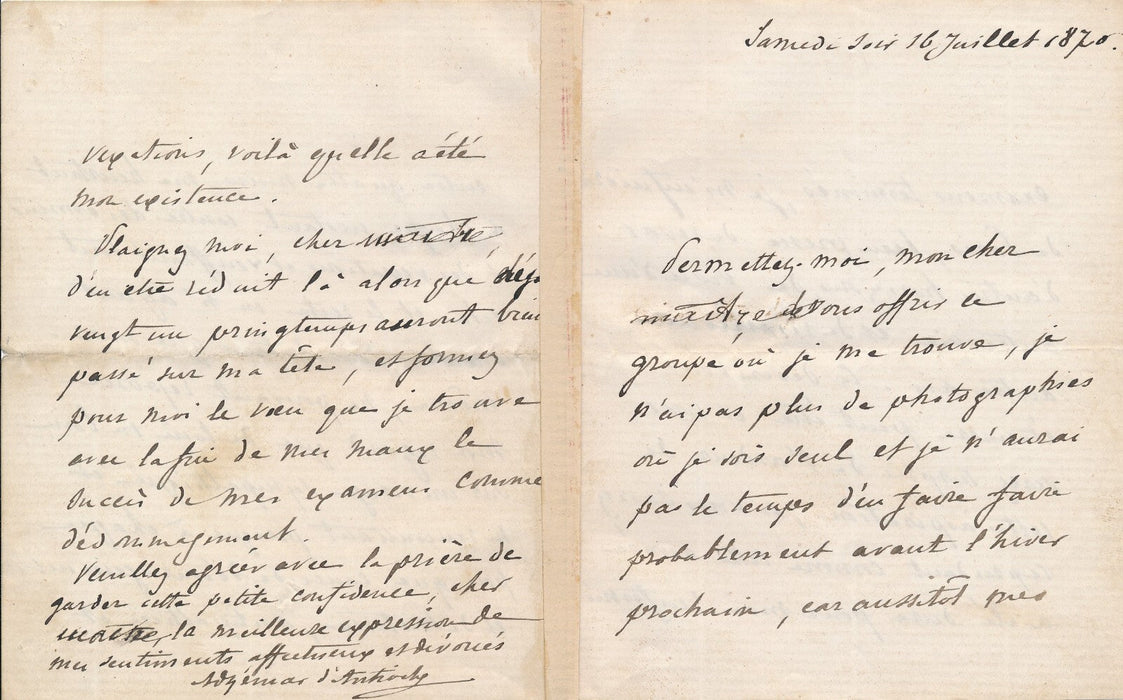 Samedi soir 16 Juillet 1870.
Permettez-moi, mon cher
maître, de vous offrir ce
groupe où je me trouve, je
n'ai pas plus de photographies
où je sois seul et je n'aurai
pas le temps d'en faire faire
probablement avant l'hiver
prochain, car aussitôt mes
vexations, voilà quelle a été
mon existence.
Plaignez moi, cher maître,
d'en être réduit là alors que déjà
vingt un printemps auront bien
passé sur ma tête, et formez
pour moi le vœu que je trouve
avec la fin de mes maux le
succès de mes examens comme
dédommagement.
Veuillez agréer avec la prière de
garder cette petite confidence, cher
maître, la meilleure expression de
mes sentiments affectueux et dévoués
Adhémar d'Antioche